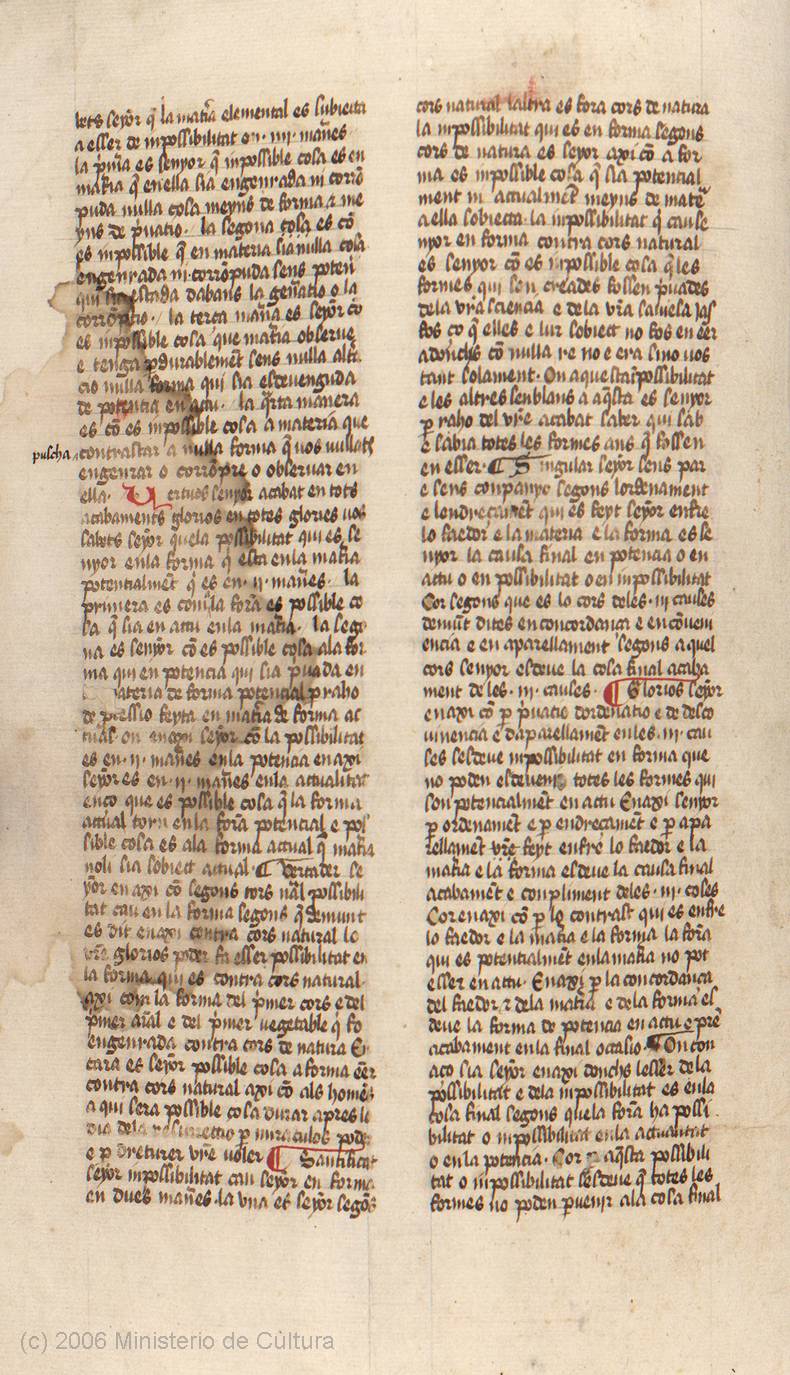 lets seyor q̄ la mat̄ia elemental es subiecta
a esser de inpossibilitat en · iiii · man̄es
la p̄m̄a es senyor q̄ inpossible cosa es en
mat̄ia q̄ en ella sia engenrada ni corrō
puda nulla cosa meyns de forma e me
yns de p̄uatio · la segona cosa es cō
es inpossible q̄ en materia sia nulla cosa
engenrada ni corrōpuda sens poten
estada dabans la gen̄atio o la
la terça man̄a es seyor cō
es inpossible cosa que mat̄ia obserue
e tenga pdurablemēt sens nulla alt̄e
cio nulla forma qui sia esdeuenguda
de potencia en actu · la q̄rta manera
es cō es inpossible cosa a materia que
puscha contrastar a nulla forma q̄ uos uullats
engenrar o corrōpre o obseruar en
ella · Uertuos senyor acabat en tots
acabaments glorios en totes glories uos
sabets seyor quela possibilitat qui es se
nyor en la forma q̄ esta en la mat̄ia
potencialmēt q̄ es en · ij · man̄es · la
primera es com la for̄a es possible co
sa q̄ sia en actu en la mat̄ia · la sego
na es senyor cō es possible cosa a la for
ma qui en potencia qui sia p̄uada en
materia de forma potencial p raho
de p̄essio feyta en mat̄ia de forma ac
tual · on enaxi seyor cō la possibilitat
es en · ij · man̄es en la potencia enaxi
seyor es en · ij · man̄es en la actualitat
en ço que es possible cosa q̄ la forma
actual torn en la for̄a potencial e pos
sible cosa es a la forma actual q̄ mat̄ia
noli sia sobiect actual · ¶ Vertader se
yor enaxi cō segons cors nāl possibili
tat cau en la forma segons q̄ demunt
es dit enaxi contra cors natural lo
vr̄e glorios poder fa esser possibilitat en
la forma qui es contra cors natural ·
axi com la forma del p̄mer cors e del
p̄mer an̄al e del p̄mer vegetable q̄ fo
engenrada contra cors de natura En
cara es seyor possible cosa a forma eēr
contra cors natural axi cō als homēs
a qui sera possible cosa durar apres le
dia dela resurrectio p miraculos poder
e p dreturer vr̄e uoler ¶ Santificat
seyor inpossibilitat cau seyor en forma
en dues man̄es · la vna es seyor segōs
cors natural laltra es fora cors de natura
la inpossibilitat qui es en forma segons
cors de natura es seyor axi cō a for
ma es inpossible cosa q̄ sia potencial
ment ni actualmēt meyns de mat̄ia
a ella sobiecta · la inpossibilitat q̄ cau se
nyor en forma contra cors natural
es senyor cō es inpossible cosa q̄ les
formes qui son creades fossen p̄uades
dela vr̄a sciencia e de la vr̄a saluesa jas
fos ço q̄ elles e lur sobiect no fos en eēr
adonchs cō nulla re no era sino uos
tant solament · On aquesta īpossibilitat
e les altres senblans a aq̄sta es senyor
p raho del vr̄e acabat saber qui sab
e sabia totes les formes ans q̄ fossen
en esser · ¶ Singular seyor sens par
e sens conpanyo segons lordenament
e lendreçamēt qui es feyt seyor enfre
lo faedor e la materia e la forma es se
nyor la causa final en potencia o en
actu o en possibilitat o en inpossibilitat
Cor segons que es lo cors deles · iij causes
demūt dites en concordança e en cōueni
encia e en aparellament segons aquel
cors senyor esdeue la cosa final acaba
ment de les · iij · causes · ¶ Glorios seyor
enaxi cō p p̄uatio dordenatio e de desco
uinencia e daparellamēt en les · iij · cau
ses sesdeue inpossibilitat en forma que
no poden esdeuenir totes les formes qui
son potencialmēt en actu Enaxi senyor
p ordenamēt e p endreçamēt e p apa
rellamēt vr̄e feyt enfre lo faedor e la
mat̄ia e la forma esdeue la causa final
acabamēt e conpliment deles · iij · coses
Cor enaxi cō p lo contrast qui es enfre
lo faedor e la mat̄ia e la forma la for̄a
qui es potencialmēt en la mat̄ia no pot
esser en actu · Enaxi p la concordança
del faedor ⁊ dela mat̄ia e dela forma es
deue la forma de potencia en actu e p̄re
acabament en la final ocasio · ¶ On con
aço sia seyor enaxi donchs lesser dela
possibilitat e dela inpossibilitat es en la
cosa final segons quela for̄a ha possi
bilitat o inpossibilitat en la actualitat
o en la potencia · Cor aq̄sta possibili
tat o inpossibilitat sesdeue q̄ totes les
formes no poden p̄uenir a la cosa final
(c) 2006 Ministerio de Cultura